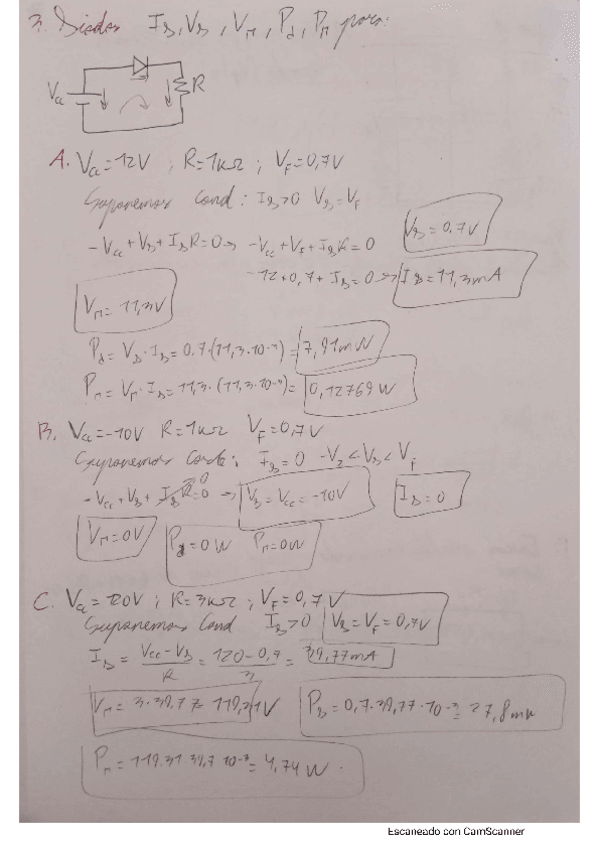 3. Diodos I_D, V_D, V_R, P_d, P_R para:
V_cc R
A. V_cc = 12V ; R = 1kΩ ; V_F = 0,7V
Suponemos Cond: I_D > 0 V_D = V_F
V_D = 0,7V
-V_cc + V_D + I_D R = 0 → -V_cc + V_F + I_D R = 0
-12 + 0,7 + I_D = 0 → I_D = 11,3mA
V_R = 11,3V
P_d = V_D · I_D = 0,7 · (11,3 · 10^-3) = 7,91mW
P_R = V_R · I_D = 11,3 · (11,3 · 10^-3) = 0,12769 W
B. V_cc = -10V R = 1kΩ V_F = 0,7V
Suponemos Corte: I_D = 0 -V_Z < V_D < V_F
-V_cc + V_D + I_D R = 0 → V_D = V_cc = -10V I_D = 0
0
V_R = 0V P_d = 0W P_R = 0W
C. V_cc = 120V ; R = 3kΩ ; V_F = 0,7V
Suponemos Cond I_D > 0 V_D = V_F = 0,7V
I_D = V_cc - V_D / R = 120 - 0,7 / 3 = 39,77mA
V_R = 3 · 39,77 = 119,31V P_D = 0,7 · 39,77 · 10^-3 = 27,8mW
P_R = 119.31 · 39,7 10^-3 = 4,74 W.
Escaneado con CamScanner